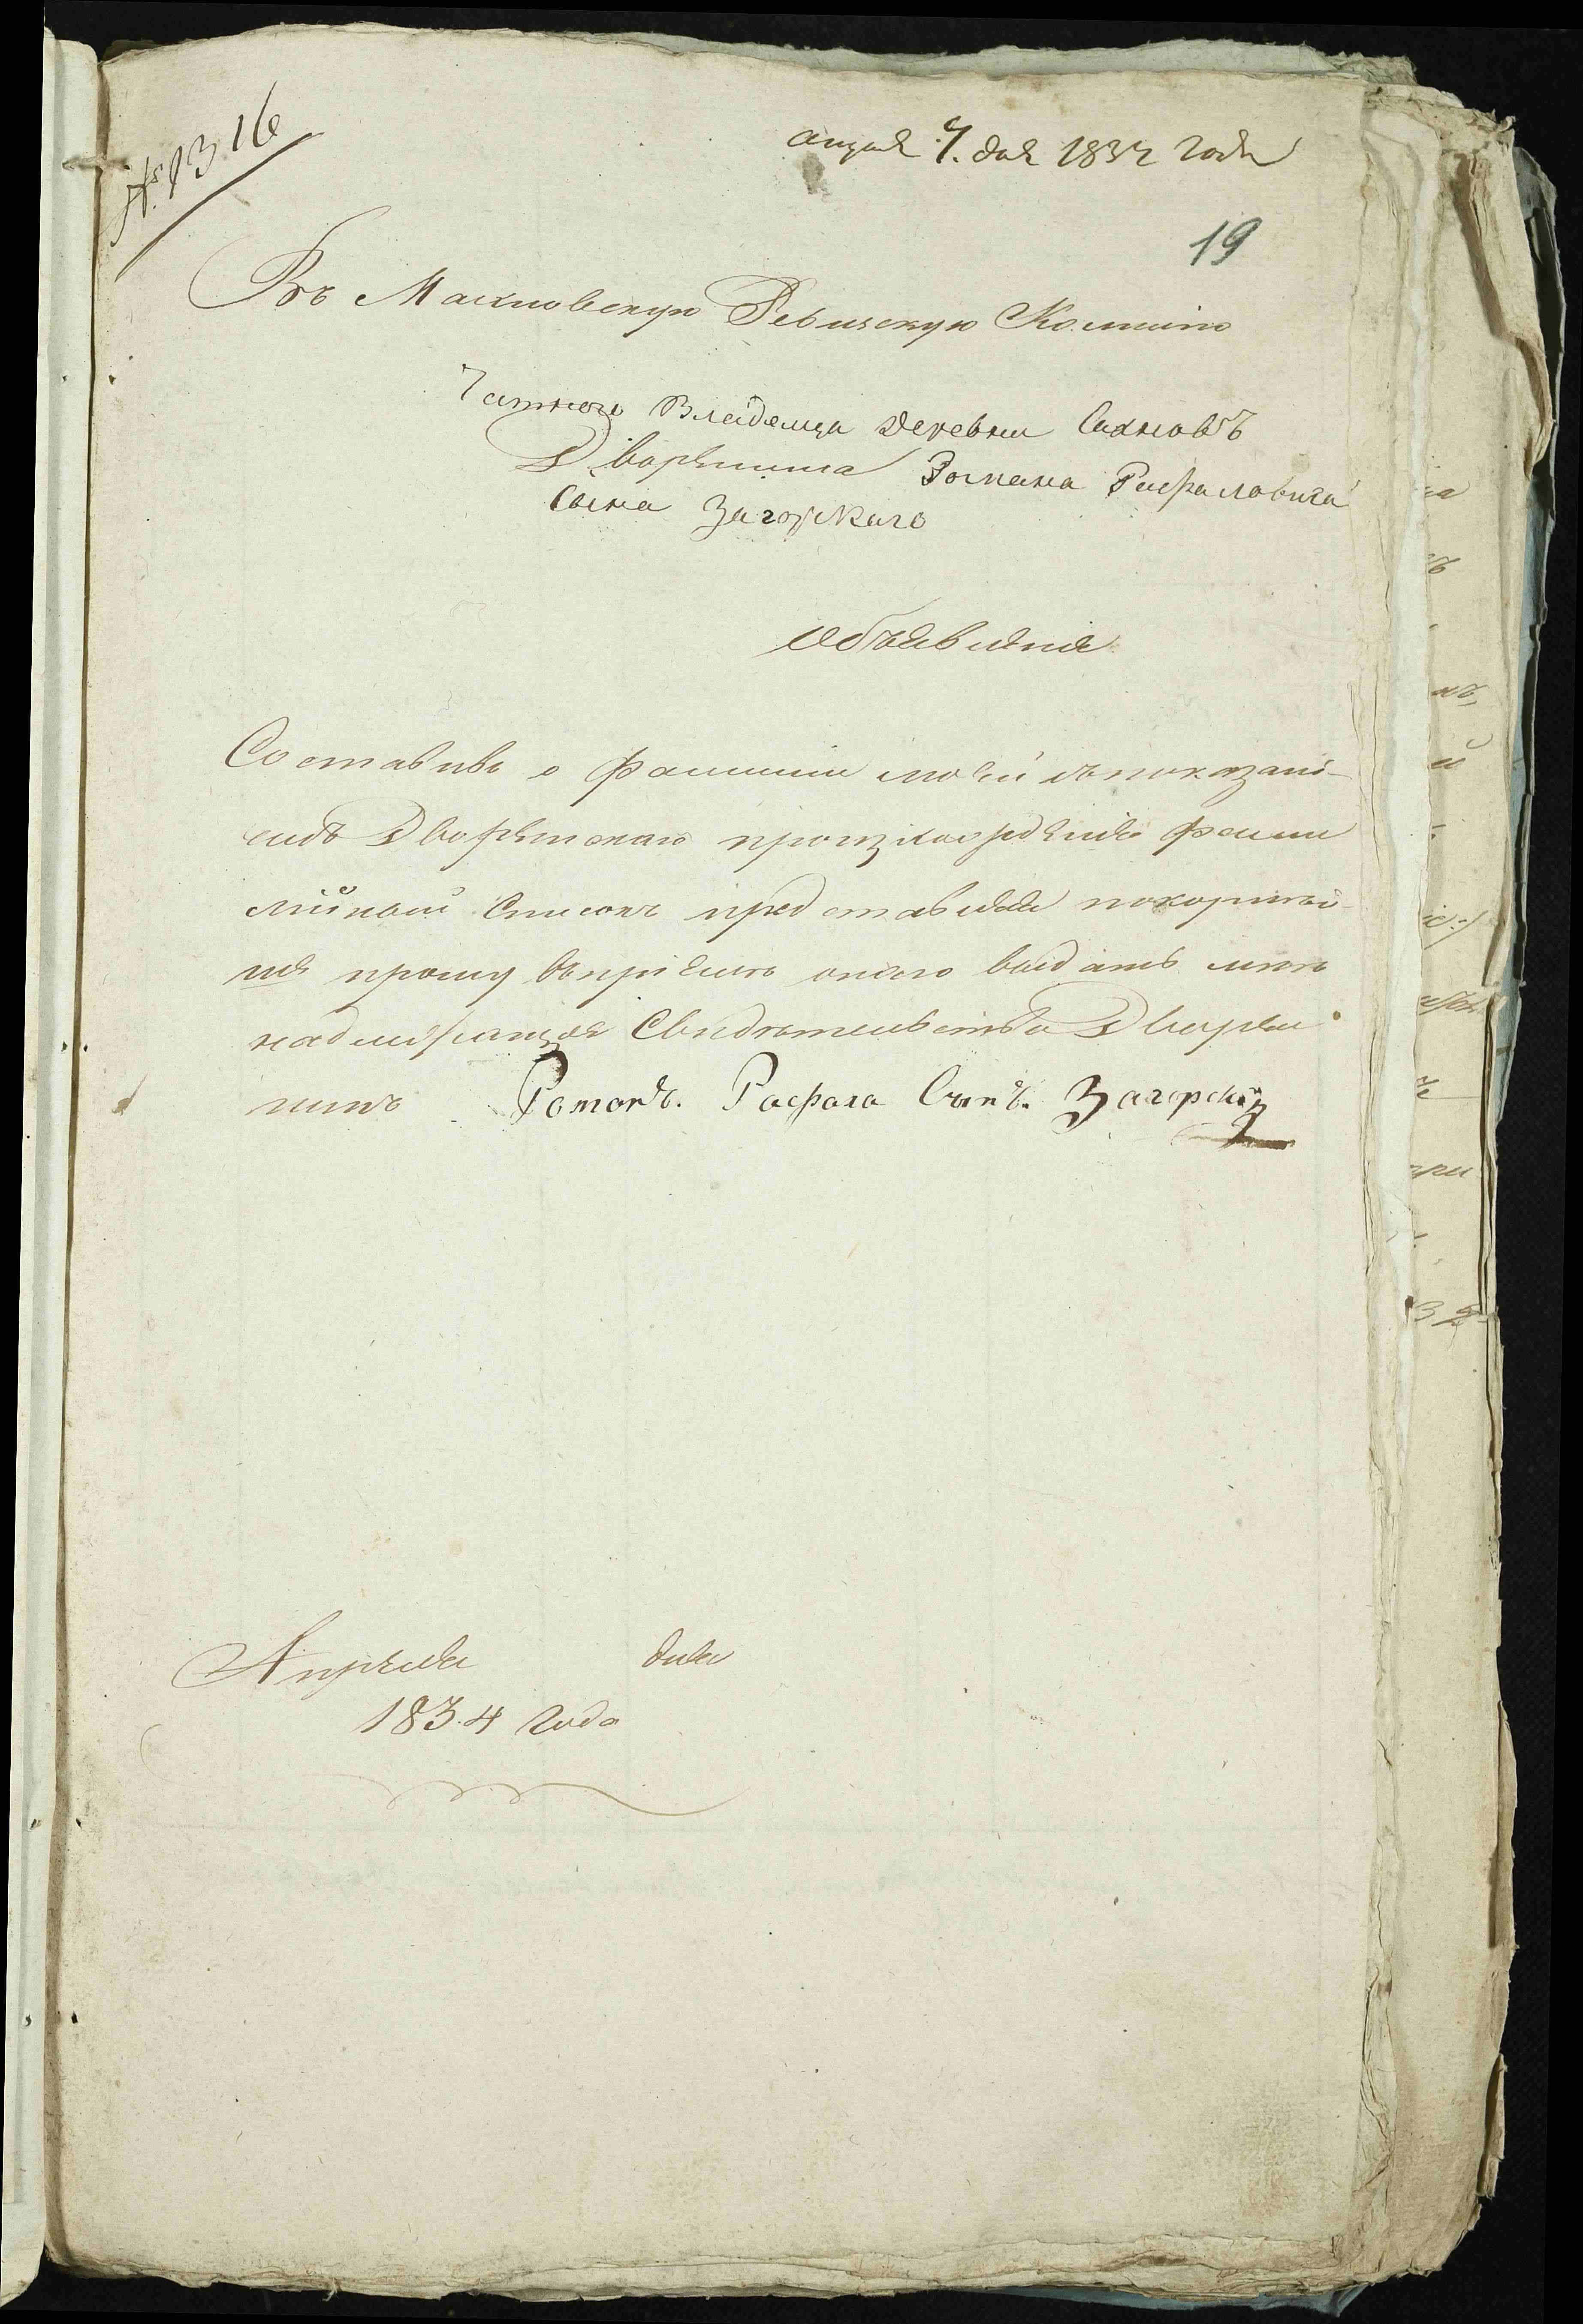 № 1316
апреля 7. дня 1834 года
19
Въ Махновскую Ревизскую Комисію
Частного Владельца Деревни Сахновъ
Дворянина Романа Рафаловича
Сына Загорскаго
Объявленіе
Составивъ о фамиліи моей съ показані-
емъ Дворянскаго произхожденія фами
лійный Списокъ представляя покорнѣй-
ше прошу въпріемѣ онаго выдать мнѣ
надлежащее Свидѣтельство Дворя-
нинъ Романъ. Рафала Сынъ. Загорскій
Апреля дня
1834 года